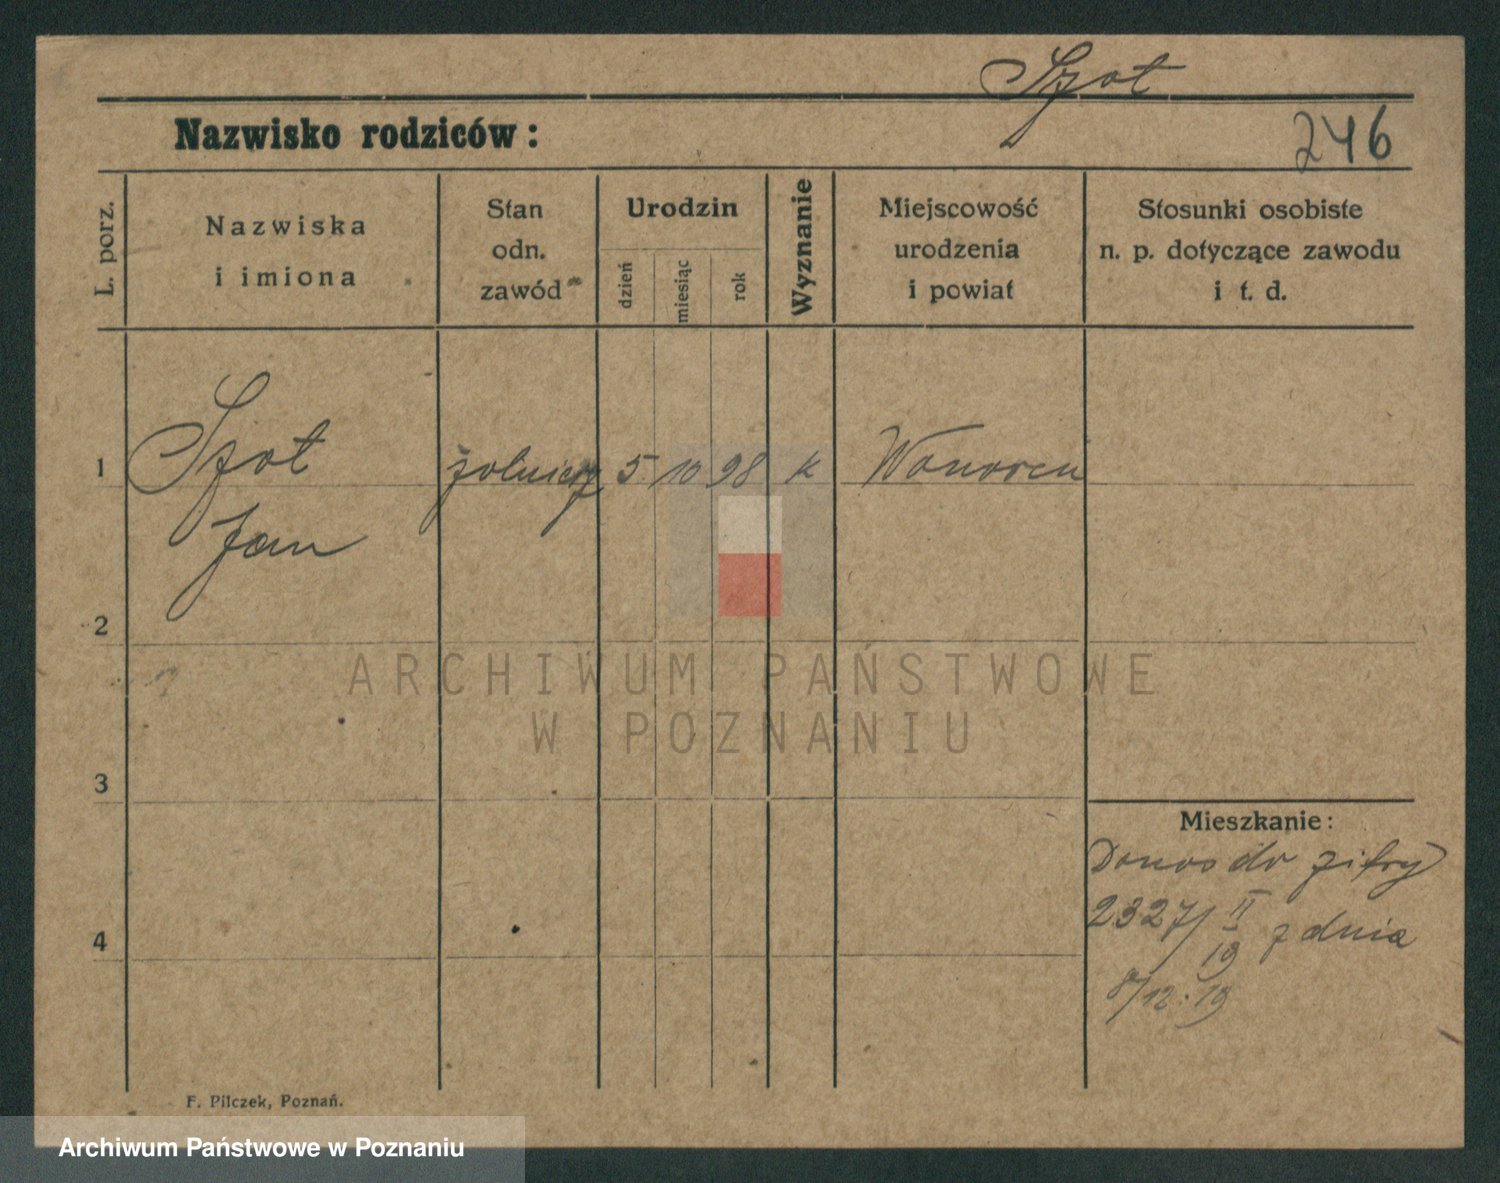 Szot
Nazwisko rodziców:
246
L. porz.
Nazwiska
i imiona
Stan
odn.
zawód
Urodzin
dzień
miesiąc
rok
Wyznanie
Miejscowość
urodzenia
i powiat
Stosunki osobiste
n. p. dotyczące zawodu
i t. d.
1
Szot
Jan
żołnierz
5
10
98
k
2
3
4
ARCHIWUM PAŃSTWOWE
W POZNANIU
Mieszkanie:
Donos do
2327/II
19
z dnia
8/12.19
F. Pilczek, Poznań.
Archiwum Państwowe w Poznaniu